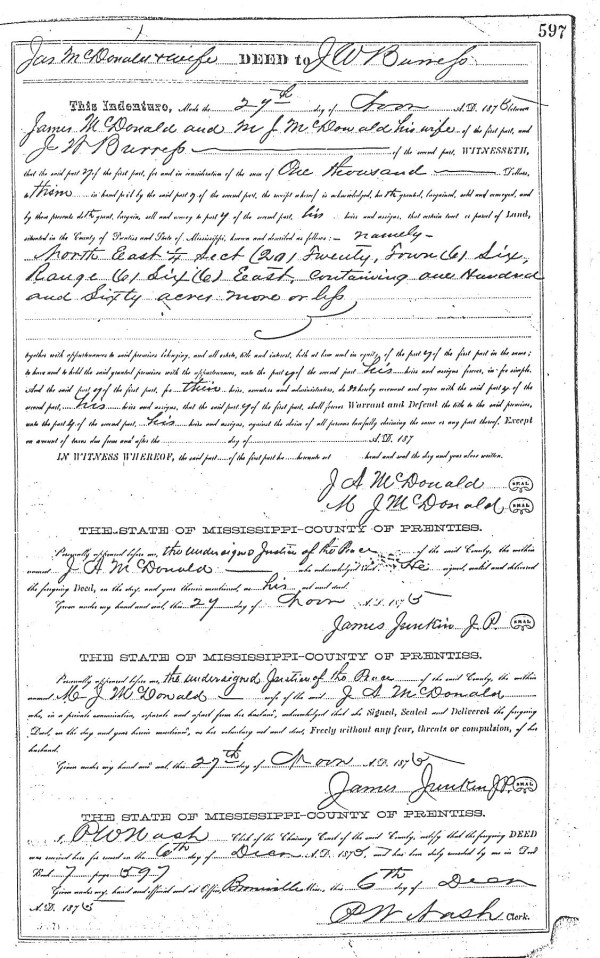 597
Jas McDonald & wife DEED to J W Burress
This Indenture, Made the 27th day of Novr A.D. 1875 between
James McDonald and M J McDonald his wife of the first part, and
J W Burress of the second part, WITNESSETH,
that the said part y of the first part, for and in consideration of the sum of One thousand Dollars,
to them in hand paid by the said part y of the second part, the receipt whereof is acknowledged, ha th granted, bargained, sold and conveyed, and
by these presents do th grant, bargain, sell and convey to part y of the second part, his heirs and assigns, that certain tract or parcel of Land,
situated in the County of Prentiss and State of Mississippi, known and described as follows: namely—
North East ¼ Sect (20) Twenty, Town (6) Six,
Range (6) Six (6) East, containing one Hundred
and Sixty acres more or less
together with appurtenances to said premises belonging, and all estate, title and interest, both at law and in equity of the part y of the first part in the same;
to have and to hold the said granted premises with the appurtenances, unto the part y of the second part his heirs and assigns forever, in fee simple.
And the said part y of the first part, for their heirs, executors and administrators, do hereby covenant and agree with the said part y of the
second part, his heirs and assigns, that the said part y of the first part, shall forever Warrant and Defend the title to the said premises,
unto the part y of the second part, his heirs and assigns, against the claim of all persons lawfully claiming the same or any part thereof, Except
on amount of taxes due from and after the day of A.D. 187
IN WITNESS WHEREOF, the said part of the first part ha hereunto set hand and seal the day and year above written.
J A McDonald SEAL
M J McDonald SEAL
THE STATE OF MISSISSIPPI-COUNTY OF PRENTISS.
Personally appeared before me, the undersigned Justice of the Peace of the said County, the within
named J A McDonald who acknowledged that He signed, sealed and delivered
the foregoing Deed, on the day, and year therein mentioned, as his act and deed.
Given under my hand and seal, this 27 day of Novr A.D. 1875
James Junkin J.P. SEAL
THE STATE OF MISSISSIPPI-COUNTY OF PRENTISS.
Personally appeared before me, the undersigned Justice of the Peace of the said County, the within
named M J McDonald wife of the said J A McDonald
who, in a private examination, separate and apart from her husband, acknowledged that she Signed, Sealed and Delivered the foregoing
Deed, on the day and year herein mentioned, as her voluntary act and deed, Freely without any fear, threats or compulsion, of her
husband.
Given under my hand and seal, this 27th day of Novr A.D. 1875
James Junkin J.P. SEAL
THE STATE OF MISSISSIPPI-COUNTY OF PRENTISS.
I, P W Nash Clerk of the Chancery Court of the said County, certify that the foregoing DEED
was received here for record on the 6th day of Decr A.D. 1875, and has been duly recorded by me in Deed
Book 7 page 597
Given under my hand and official seal at Office, Booneville Miss., this 6th day of Decr
A.D. 1875
P W Nash Clerk.